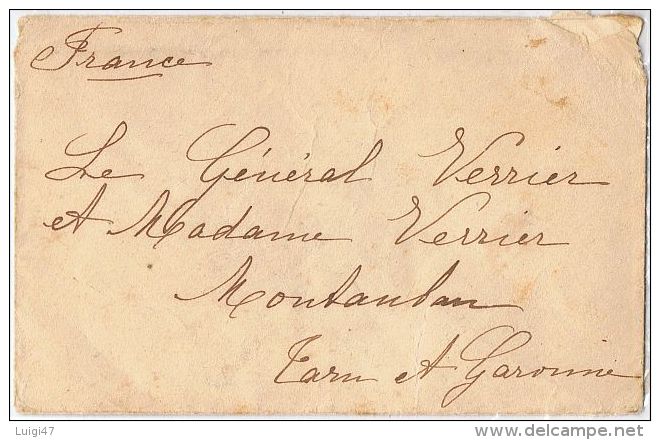 France
Le Général Verrier
et Madame Verrier
Montauban
Tarn et Garonne
Luigi47
delcampe.net